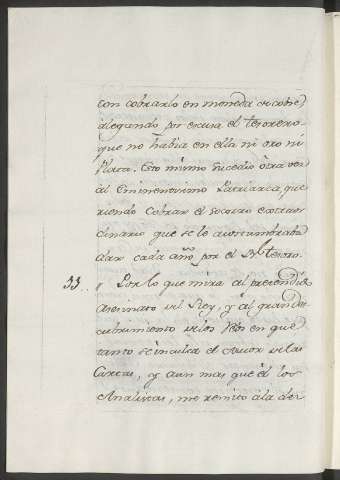 con cobrarlo en moneda de cobre,
alegando por escusa el tesorero
que no habia en ella ni oro ni
Plata. Esto mismo sucedio otra vez
al Eminentisimo Patriarca, que
riendo cobrar el socorro extraor
dinario que se le acostumbraba
dar cada año por el Rl tesoro.
33.. Por lo que mira al pretendido
Asesinato del Rey, y al grande
cubrimiento de los en que
tanto se inculca el Autor de las
Cartas, y aun mas que èl los
Analistas, me remito à la de